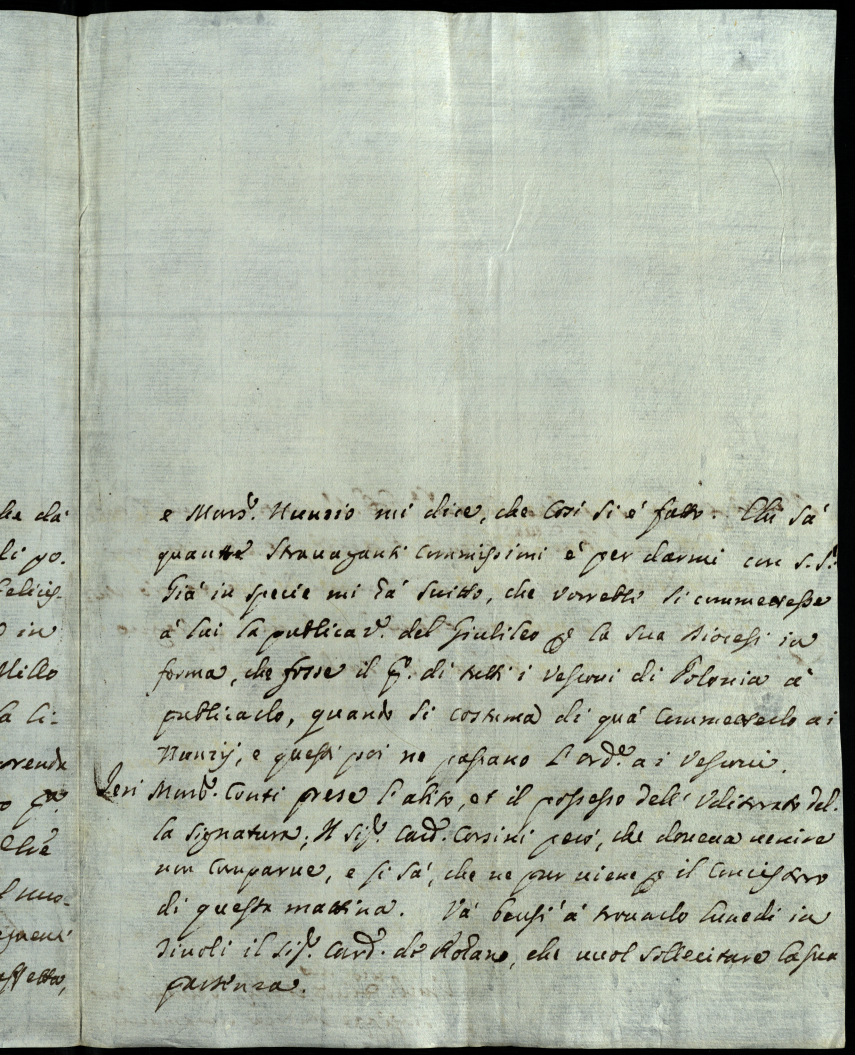 he dà
li po.
felicis-
o in
Millo
la li-
prenda
Che
l suo-
ffetta,
e Mons.r Nunzio mi dice, che così si è fatto. Chi sà
quante stravaganti commissioni è per darmi con S. S.
Già in specie mi hà scritto, che vorrebbe si commettesse
à lui la publicaz.e del Giubileo p la sua Diocesi in
forma, che fosse il p.o di tutti i Vescovi di Polonia à
publicarlo, quando si costuma di quà commetterlo ai
Nunzij, e questi poi ne passano l'ord.e a i Vescovi.
Ieri Mons.r Conti prese l'abito, et il possesso dell' Uditorato del-
la signatura; Il sig.r Card. Corsini però, che doveva venire
non comparve, e si sà, che ne pur viene p il Concistoro
di questa mattina. Và bensì à trovarlo lunedì in
Tivoli il sig.r Card. de Roano, che vuol sollecitare la sua
partenza.